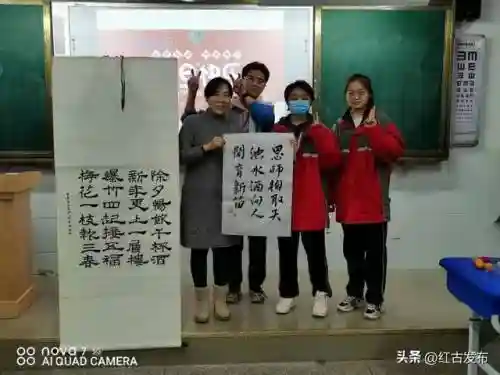 除夕暢飲千杯酒
新年更上一層樓
爆竹四起接五福
梅花一枝報三春
恩師掬取天
池水洒向人
間育新苗
nova 7 5G
AI QUAD CAMERA
头条 @红古发布